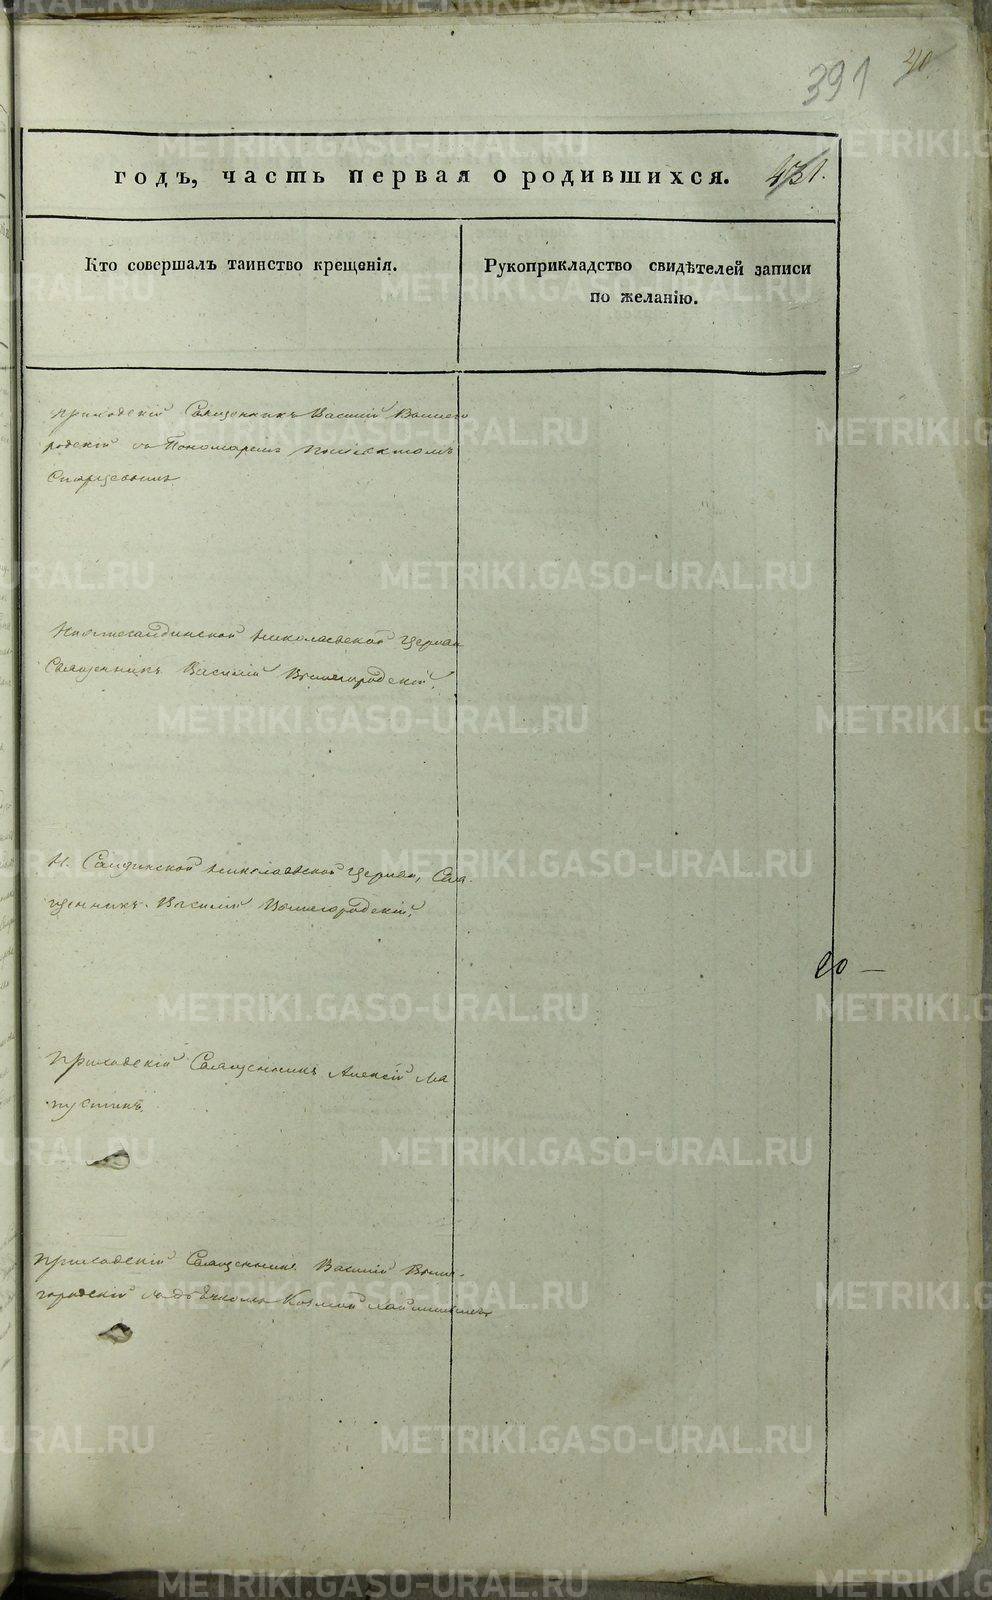 391
40
годъ, часть первая о родившихся. 431.
Кто совершалъ таинство крещенія.
Рукоприкладство свидѣтелей записи
по желанію.
приходскій Священникъ Василій Вышего
родскій съ Пономаремъ
Старцевымъ
Нижнесалдинской Николаевской Церкви
Священникъ Василій Вышегородскій.
Н. Салдинской Николаевской Церкви, Свя-
щенникъ Василій Вышегородскій.
20 —
Приходскій Священникъ Алексій Ла
пустинъ.
приходскій Священникъ Василій Выше-
городскій съ дьячкомъ Козмой
METRIKI.GASO-URAL.RU